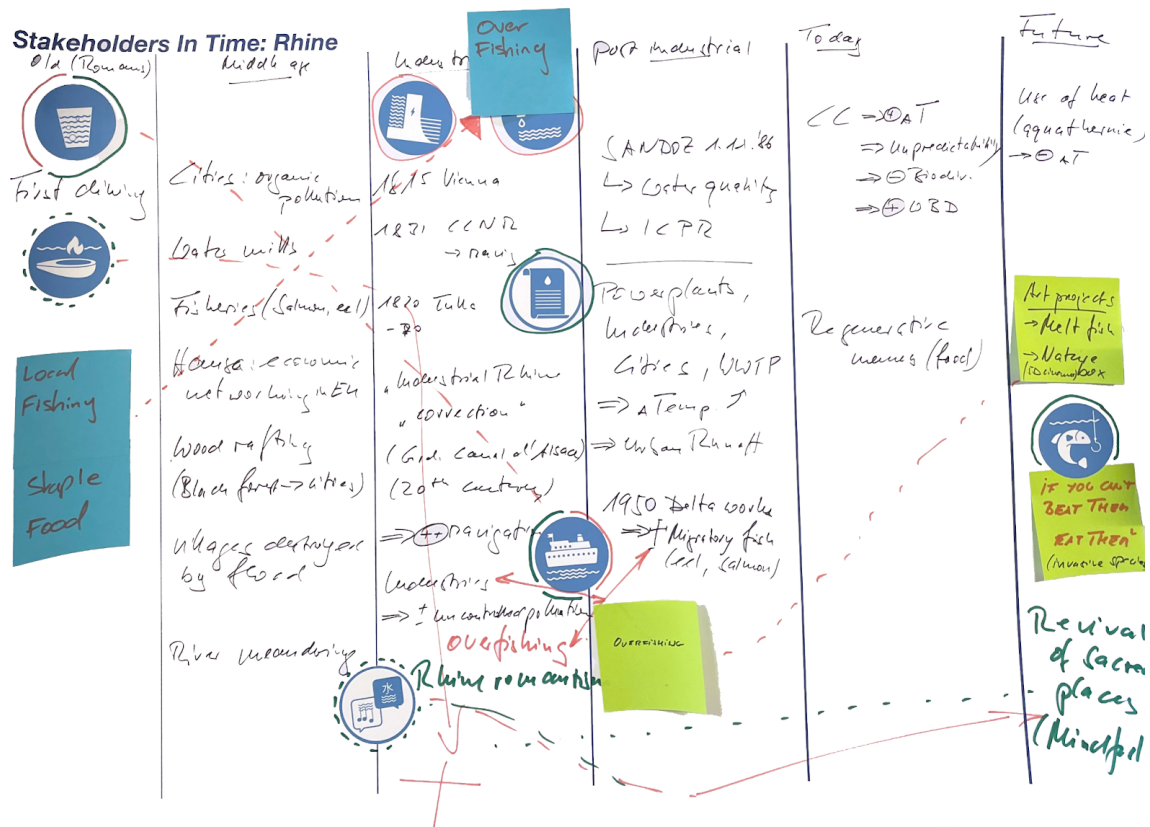 Stakeholders In Time: Rhine
Old (Romans)
First
Local
Fishing
Staple
Food
Middle age
Cities: organic
pollution
Water mills
Fisheries (Salmon, eel)
Hansa: economic
networking in EU
Wood rafting
(Black forest → cities)
villages destroyed
by flood
River meandering
Industr
Over
Fishing
1815 Vienna
1831 CCNR
→ navig
1820 Tulla
"Industrial Rhine
"correction"
(Grd. Canal d'Alsace)
(20th century)
⇒ ++ navigation
Industries
⇒ ± uncontrolled pollution
overfishing
水
Rhine romantism
Post industrial
SANDOZ 1.11.'86
↳ Water quality
↳ ICPR
Powerplants,
Industries,
Cities, WWTP
⇒ Temp. ↗
⇒ Urban Runoff
1950 Delta works
⇒ † Migratory fish
(eel, salmon)
OVERFISHING
Today
CC ⇒ ⊕ ΔT
⇒ Unpredictability
⇒ ⊖ Biodiv.
⇒ ⊕
Regenerative
(food)
Future
Use of heat
(aquathermie)
→ ⊖ ΔT
Art projects
→ Melt fish
→ Nature
box
IF YOU CAN'T
BEAT THEM
EAT THEM"
(invasive species
Revival
of Sacre
places
(Mindful